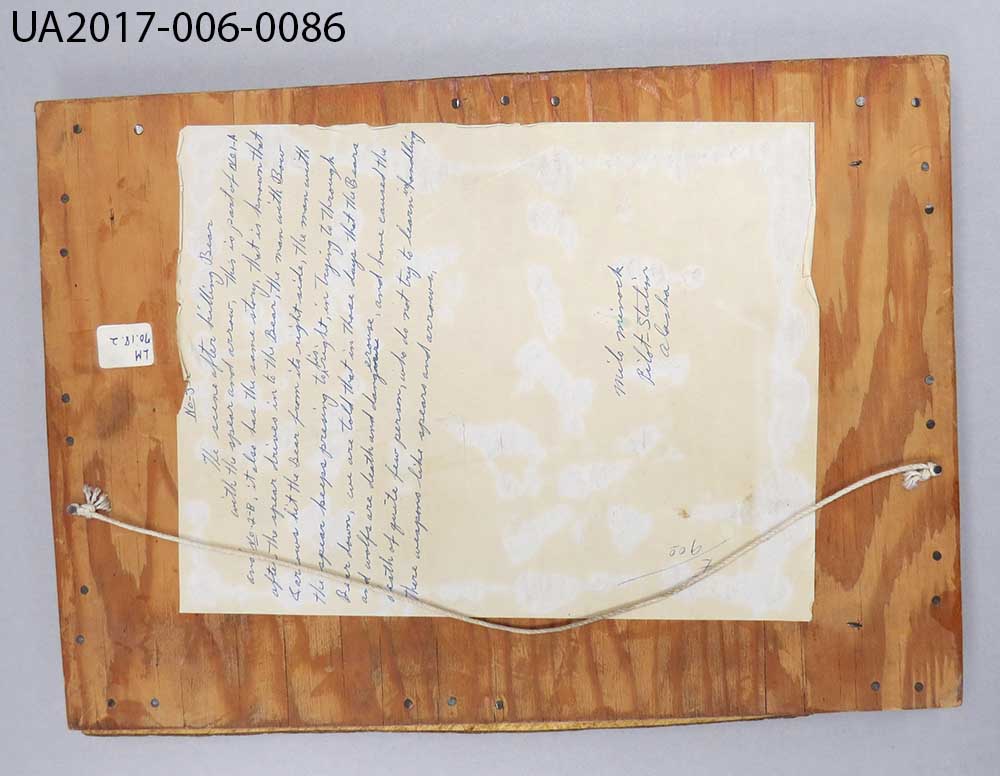 UA2017-006-0086
No-3
The scene after killing Bear
with the spear and arrow, this is part of no 1-A
and no 2B, it also has the same story, that is known that
after the spear drives in to the Bear, the man with Bow
& arrows hit the Bear from its right side, the man with
the spear keeps pressing to tight, in trying to through
Bear down, we are told that in these days that the Bears
and wolfs are death and dangerous, and have caused the
death of quite few person who do not try to learn handling
there weapons like spears and arrows.
Milo Minock
Pilot-Station
Alaska
900
LM
90.18.2